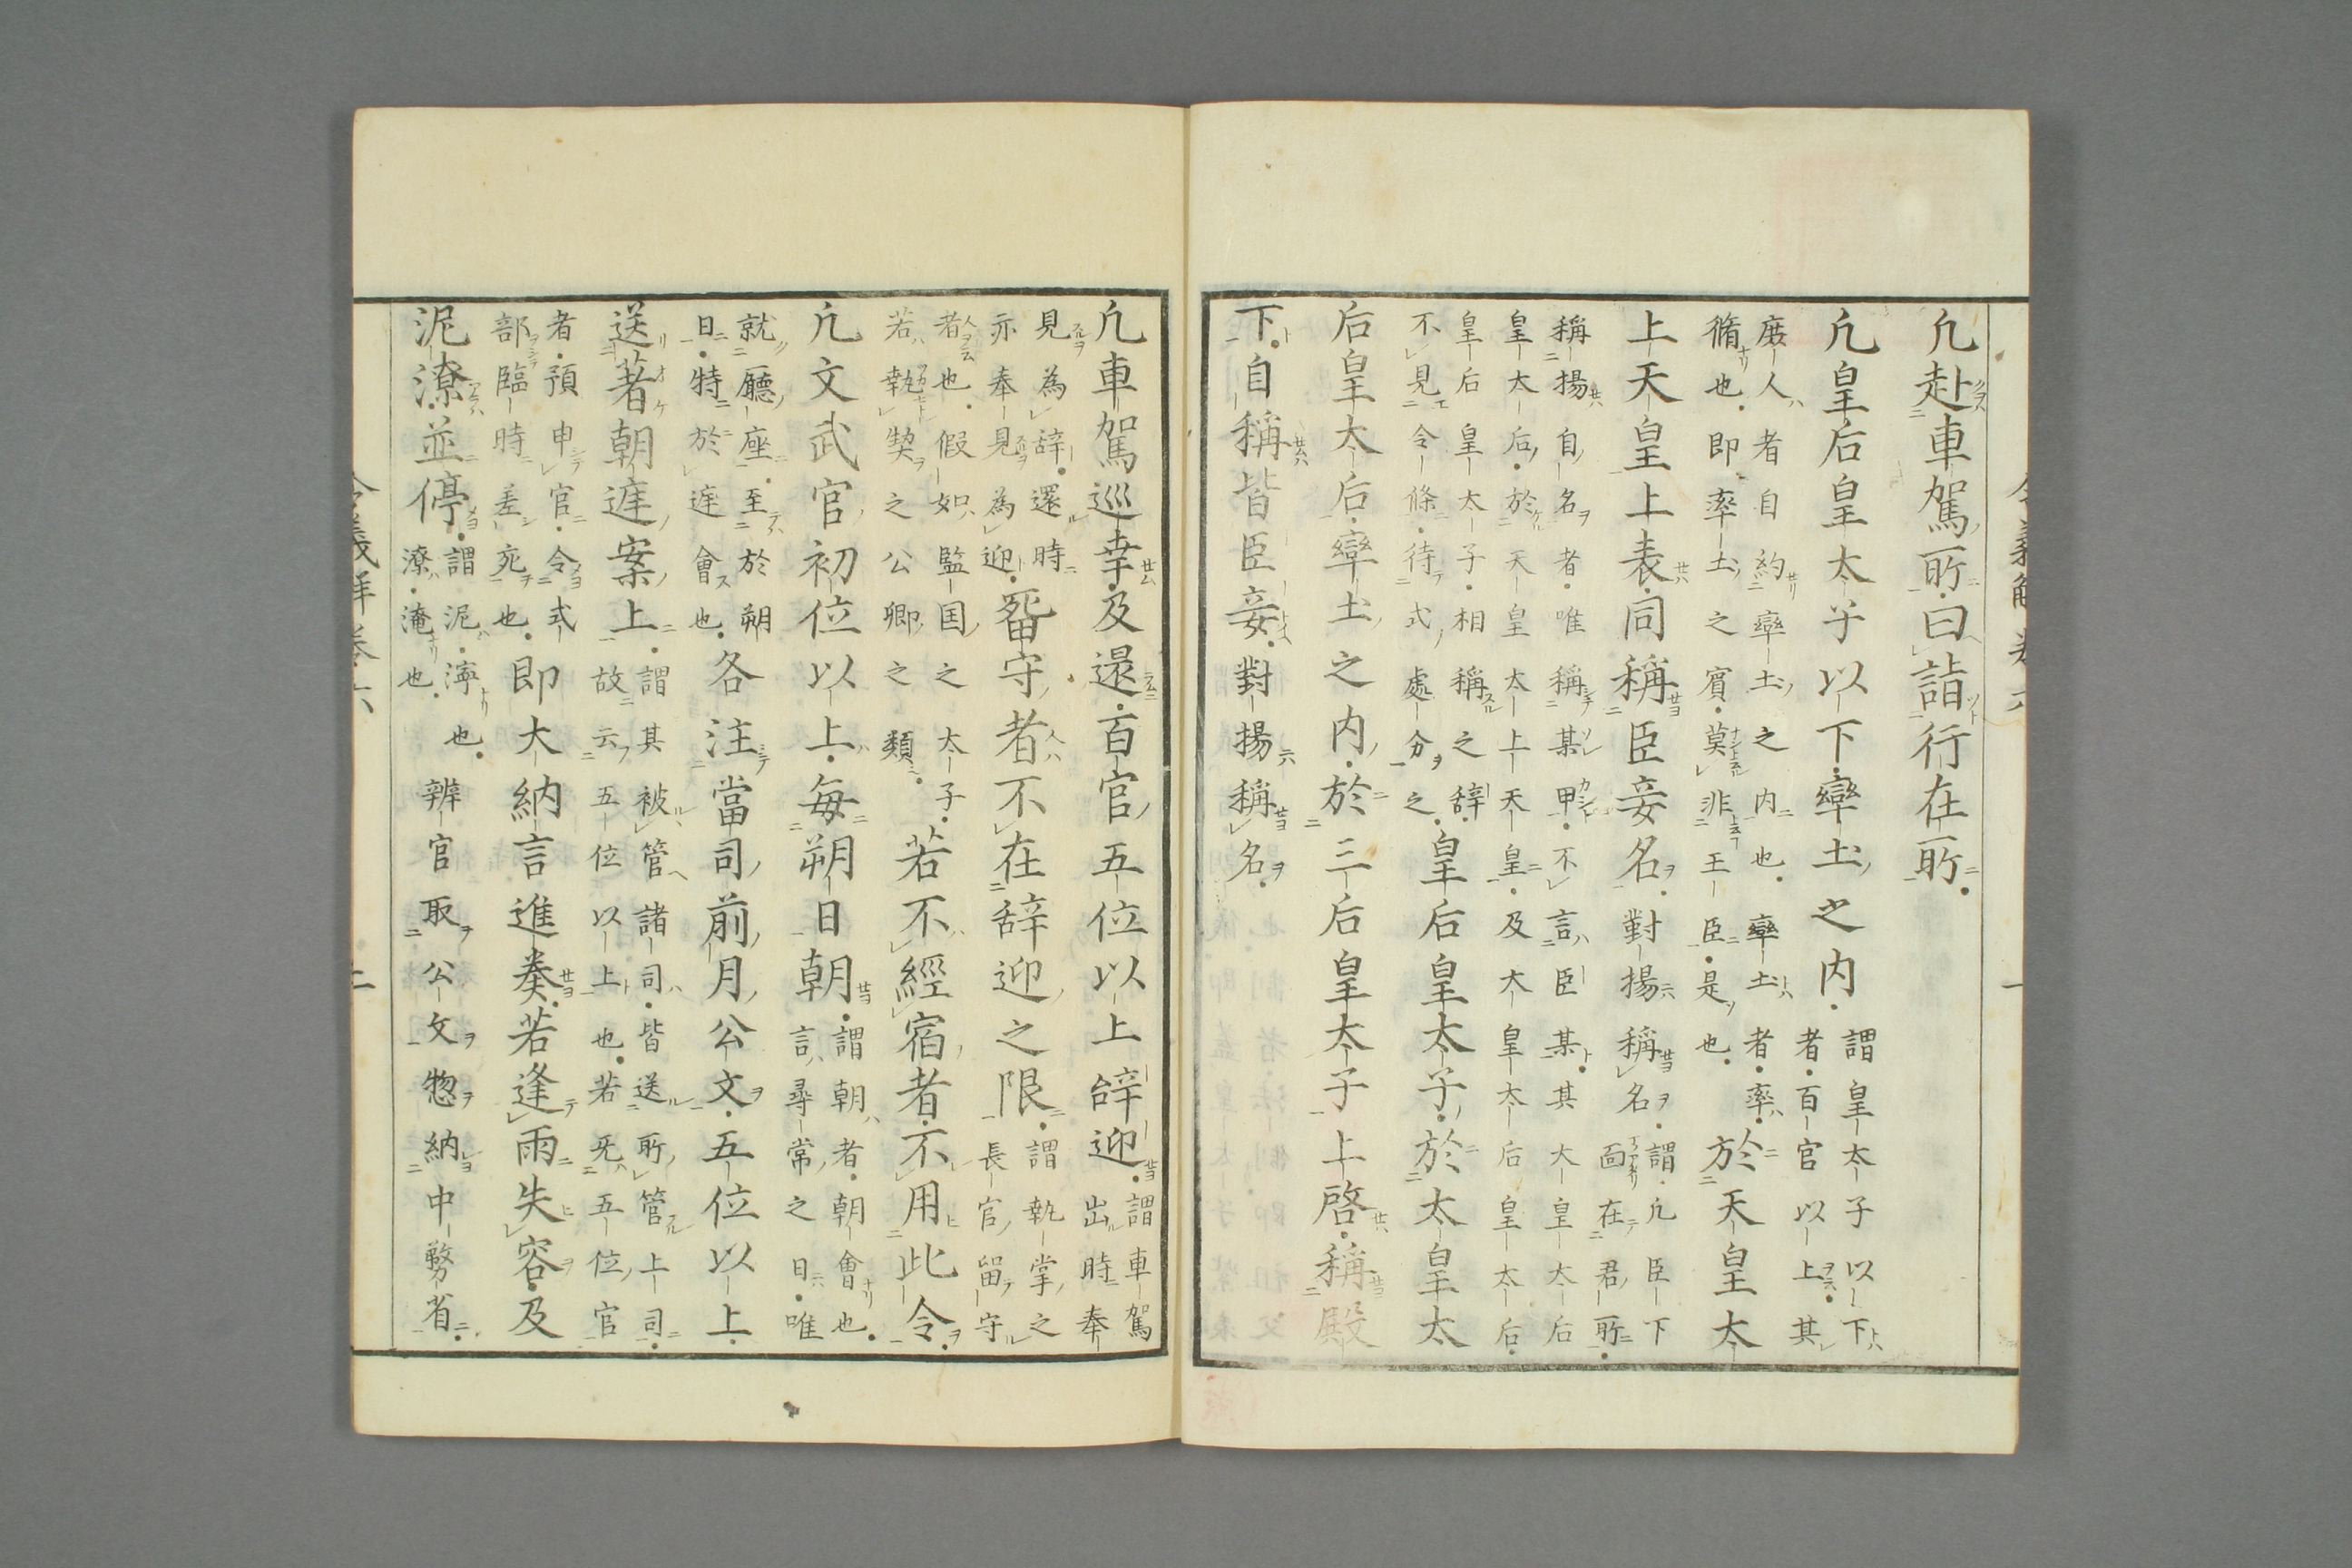 令義解卷六
凢赴車駕所曰詣行在所
凢皇后皇太子以下率土之内謂皇太子以下者百官以上其
庶人者自約率土之内也率土者率脩也即率土之賓莫非王臣是也於天皇太
上天皇上表同稱臣妾名對揚稱名謂凢臣下面在君所
稱揚自名者唯稱某甲不言臣某其大皇大后皇太后於天皇太上天皇及大皇太后皇太后
皇后皇太子相稱之辞不見令條待式處分之皇后皇太子於太皇太
后皇太后率土之内於三后皇太子上啓稱殿
下自稱皆臣妾對揚稱名
凢車駕巡幸及還百官五位以上辞迎謂車駕出時奉
見為辞還時亦奉見為迎畱守者不在辞迎之限謂執掌之長官留守
者也假如監国之太子若執契之公卿之類若不經宿者不用此令
凢文武官初位以上毎朔日朝謂朝者朝會也言尋常之日唯
就廳座至於朔日特於庭會也各注當司前月公文五位以上
送著朝庭案上謂其被管諸司皆送所管上司故云五位以上也若无五位官
者預申官令式部臨時差充也即大納言進奏若逢雨失容及
泥潦並停謂泥濘也潦淹也辨官取公文惣納中務省
令義解卷六